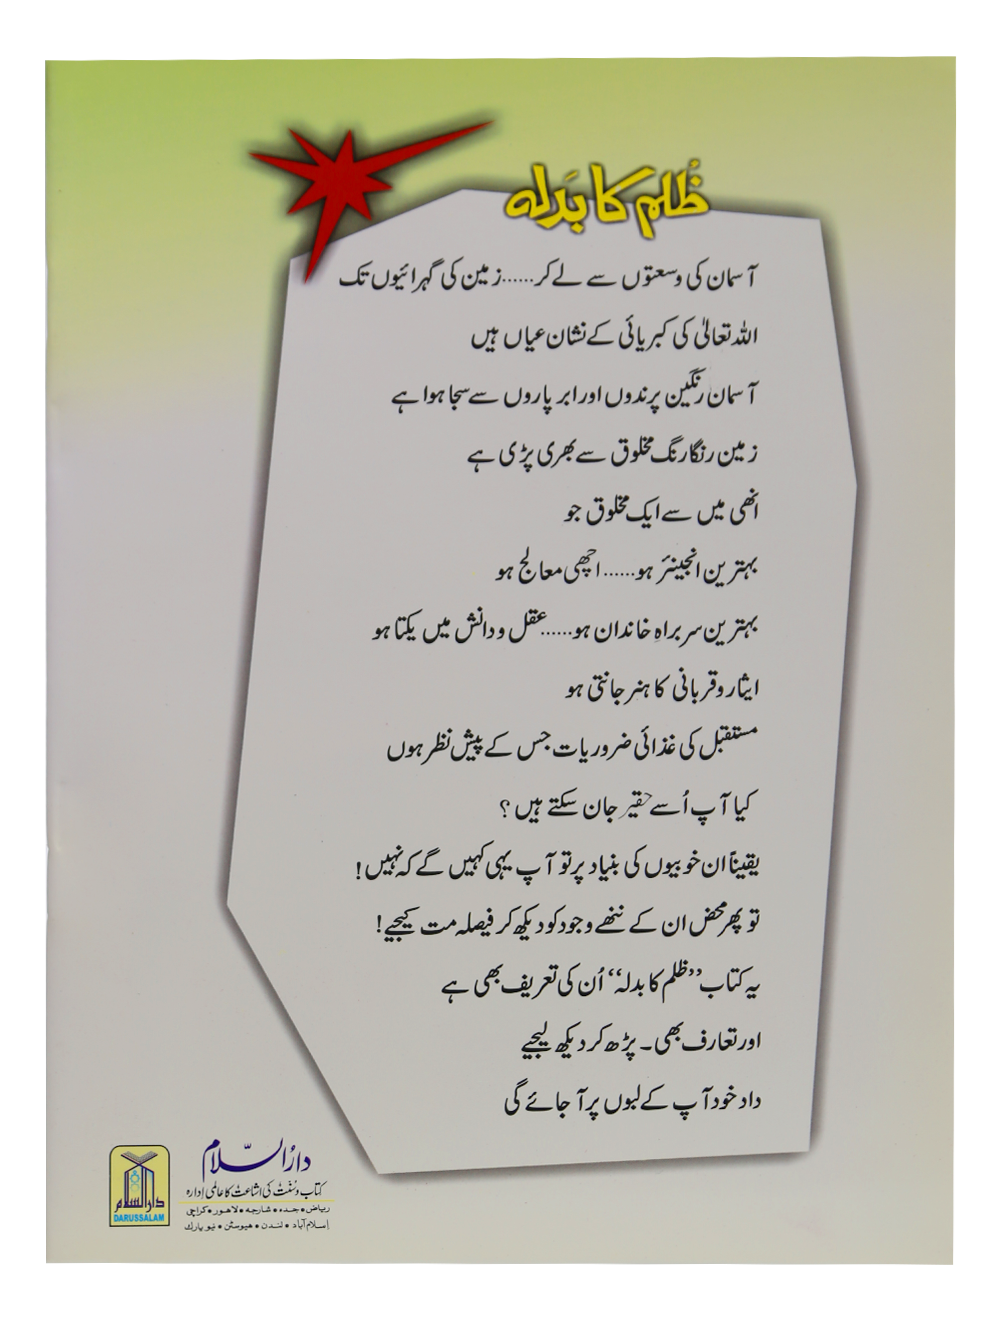 ظُلم کا بَدلہ
آسمان کی وسعتوں سے لے کر......زمین کی گہرائیوں تک
اللہ تعالیٰ کی کبریائی کے نشان عیاں ہیں
آسمان رنگین پرندوں اور ابر پاروں سے سجا ہوا ہے
زمین رنگا رنگ مخلوق سے بھری پڑی ہے
انھی میں سے ایک مخلوق جو
بہترین انجینئر ہو......اچھی معالج ہو
بہترین سربراہِ خاندان ہو......عقل و دانش میں یکتا ہو
ایثار و قربانی کا ہنر جانتی ہو
مستقبل کی غذائی ضروریات جس کے پیش نظر ہوں
کیا آپ اُسے حقیر جان سکتے ہیں؟
یقیناً ان خوبیوں کی بنیاد پر تو آپ یہی کہیں گے کہ نہیں!
تو پھر محض ان کے ننھے وجود کو دیکھ کر فیصلہ مت کیجیے!
یہ کتاب ”ظلم کا بدلہ“ اُن کی تعریف بھی ہے
اور تعارف بھی۔ پڑھ کر دیکھ لیجیے
داد خود آپ کے لبوں پر آ جائے گی
دارُالسّلام
کتاب و سُنّت کی اشاعت کا عالمی ادارہ
ریاض • جدہ • شارجہ • لاہور • کراچی
اسلام آباد • لندن • ہیوسٹن • نیو یارک
دارالسلام
DARUSSALAM